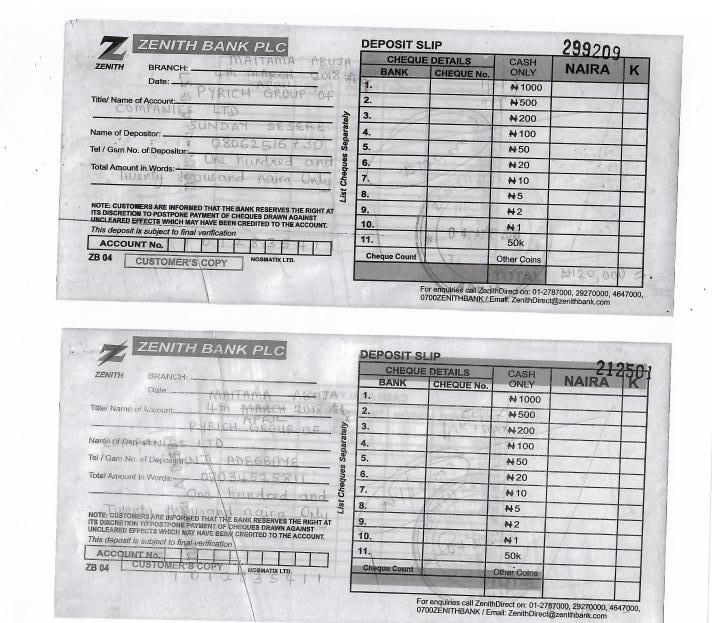 ZENITH BANK PLC
ZENITH
BRANCH: MAITAMA ABUJA
Date: 4th MARCH 2018
Title/ Name of Account: PYRICH GROUP OF
COMPANIES LTD
Name of Depositor: SUNDAY
Tel / Gsm No. of Depositor:
Total Amount in Words: One hundred and
Twenty thousand naira Only
NOTE: CUSTOMERS ARE INFORMED THAT THE BANK RESERVES THE RIGHT AT
ITS DISCRETION TO POSTPONE PAYMENT OF CHEQUES DRAWN AGAINST
UNCLEARED EFFECTS WHICH MAY HAVE BEEN CREDITED TO THE ACCOUNT.
This deposit is subject to final verification
ACCOUNT No.
ZB 04 CUSTOMER'S COPY NOSMATIX LTD.
List Cheques Separately
DEPOSIT SLIP 299209
CHEQUE DETAILS CASH ONLY NAIRA K
BANK CHEQUE No.
1. ₦1000
2. ₦500
3. ₦200
4. ₦100
5. ₦50
6. ₦20
7. ₦10
8. ₦5
9. ₦2
10. ₦1
11. 50k
Cheque Count Other Coins
TOTAL ₦120,000 =
For enquiries call ZenithDirect on: 01-2787000, 29270000, 4647000,
0700ZENITHBANK / Email: ZenithDirect@zenithbank.com
ZENITH BANK PLC
ZENITH
BRANCH:
Date: MAITAMA ABUJA
Title/ Name of Account: 4th MARCH 2018
APRIL
PYRICH GROUP OF
Name of Depositor: LTD
Tel / Gsm No. of Depositor: ADEGBOYE
Total Amount in Words:
One hundred and
Twenty thousand naira Only
NOTE: CUSTOMERS ARE INFORMED THAT THE BANK RESERVES THE RIGHT AT
ITS DISCRETION TO POSTPONE PAYMENT OF CHEQUES DRAWN AGAINST
UNCLEARED EFFECTS WHICH MAY HAVE BEEN CREDITED TO THE ACCOUNT.
This deposit is subject to final verification
ACCOUNT No.
ZB 04 CUSTOMER'S COPY NOSMATIX LTD.
List Cheques Separately
DEPOSIT SLIP 212501
CHEQUE DETAILS CASH ONLY NAIRA K
BANK CHEQUE No.
1. ₦1000
2. ₦500
3. ₦200
4. ₦100
5. ₦50
6. ₦20
7. ₦10
8. ₦5
9. ₦2
10. ₦1
11. 50k
Cheque Count Other Coins
For enquiries call ZenithDirect on: 01-2787000, 29270000, 4647000,
0700ZENITHBANK / Email: ZenithDirect@zenithbank.com